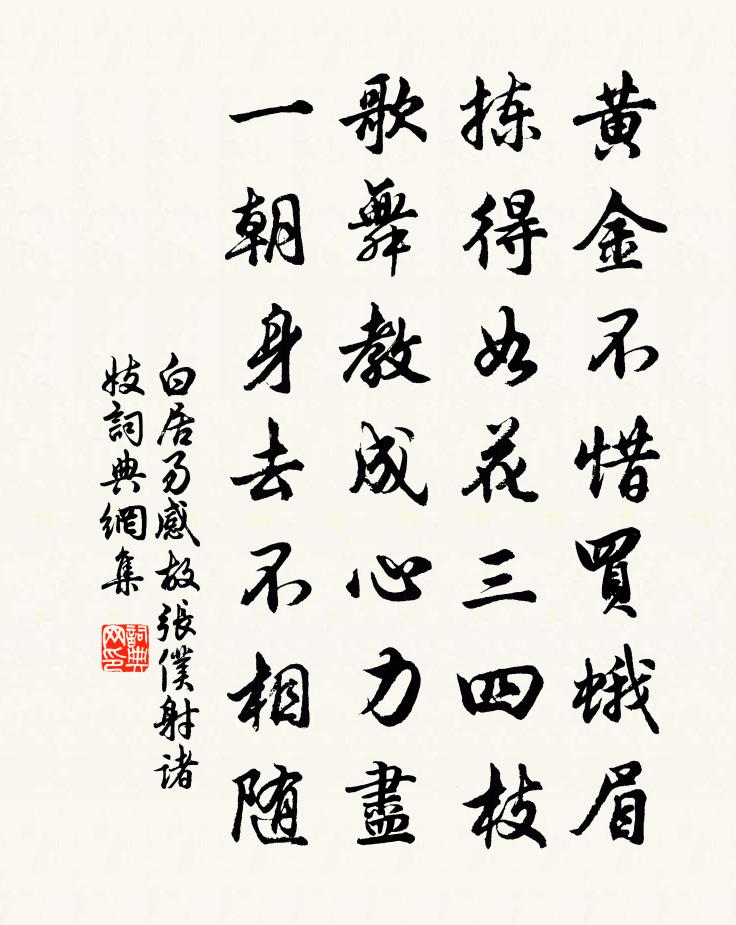 黄金不惜買蛾眉
揀得如花三四枝
歌舞教成心力盡
一朝身去不相随
白居易感故張僕射諸
妓詞典網集
詞典網印